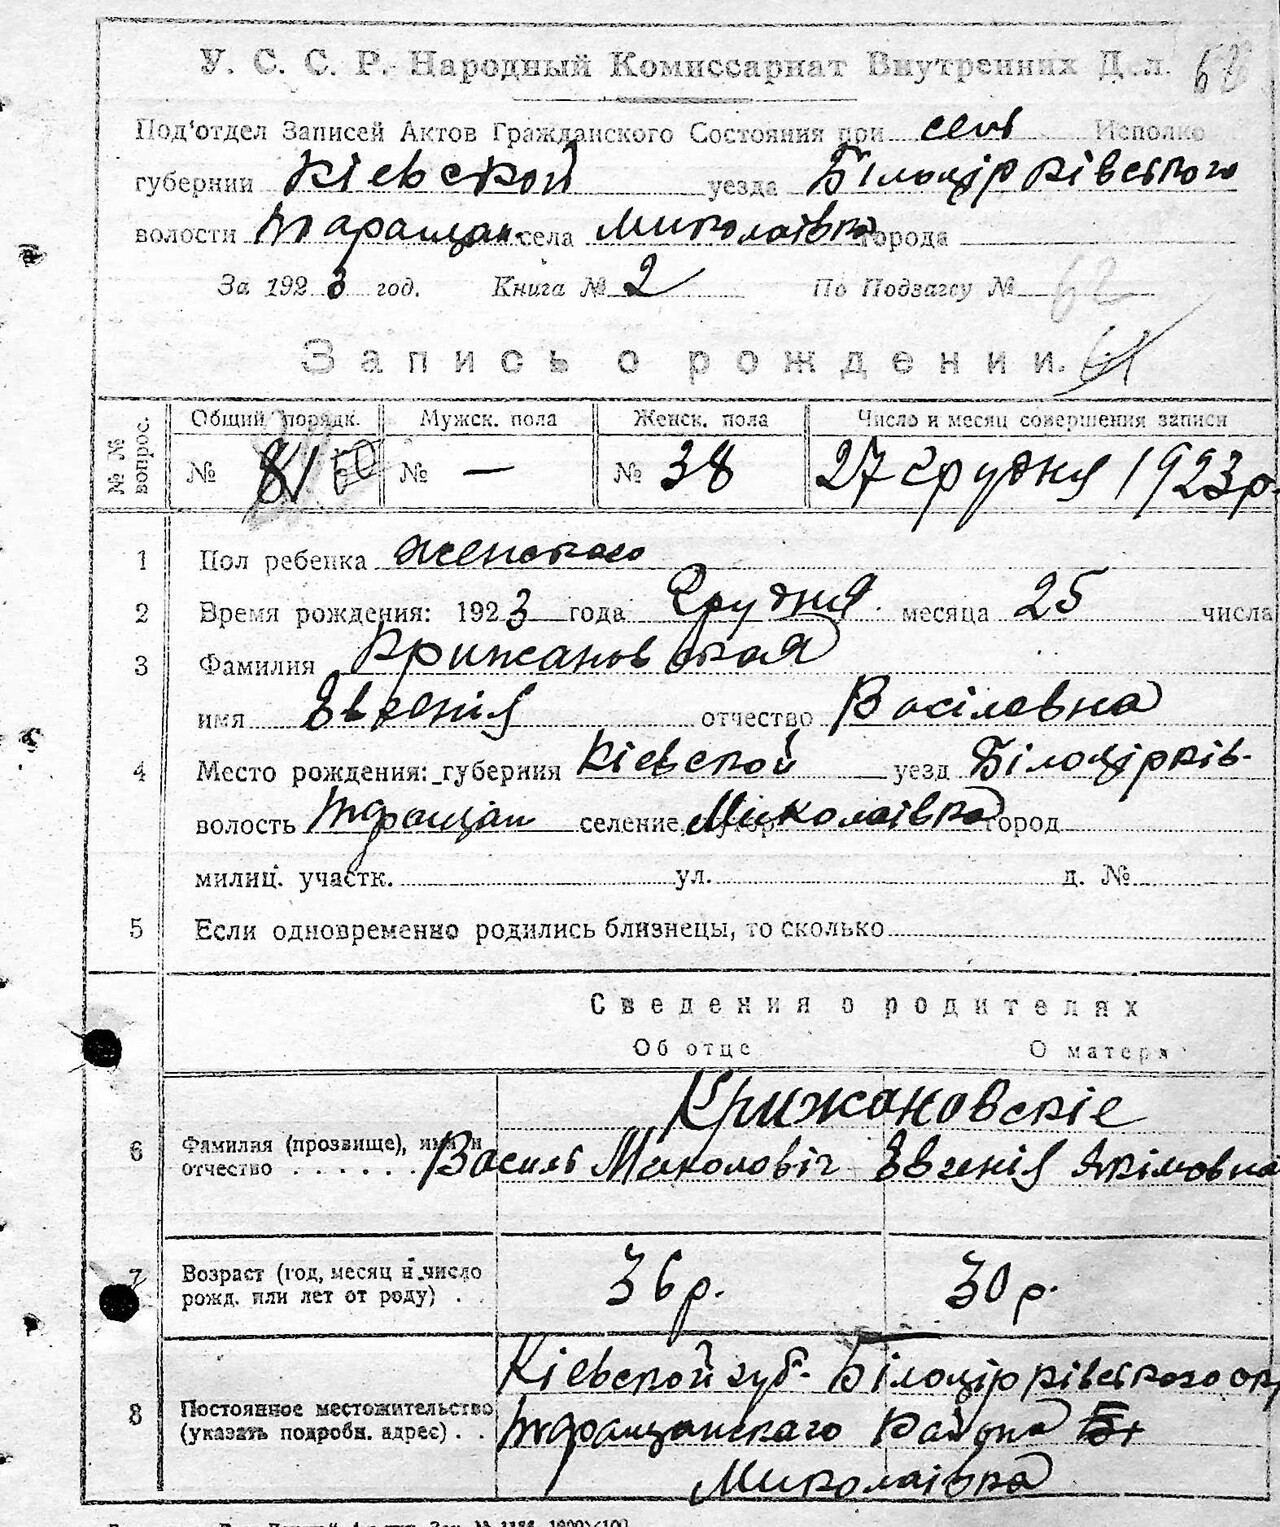 У. С. С. Р. Народный Комиссариат Внутренних Дел. 68
Под'отдел Записей Актов Гражданского Состояния при селі Исполко
губернии Кіевской уезда Білоцірківського
волости Таращан. села Миколаівка города
За 1923 год. Книга № 2 По Подзагсу № 62
Запись о рождении. 61
№ № вопрос. Общий порядк. Мужск. пола Женск. пола Число и месяц совершения записи
№ 81 60 № — № 38 27 грудня 1923 р.
1 Пол ребенка женского
2 Время рождения: 1923 года Грудня месяца 25 числа
3 Фамилия Крижановская
имя Евгенія отчество Васілевна
4 Место рождения: губерния Кіевской уезд Білоцірків-
волость Таращан селение, хутор Миколаівка город
милиц. участк. ул. д. №
5 Если одновременно родились близнецы, то сколько
Сведения о родителях
Об отце О матери
Крижановскіе
6 Фамилия (прозвище), имя и
отчество . . . . . . Василь Миколовіч Евгенія Якімовна
7 Возраст (год, месяц и число
рожд. или лет от роду) . . 36 р. 30 р.
Кіевской губ. Білоцірківського окр
8 Постоянное местожительство
(указать подробн. адрес) . . Таращанскаго Района
Миколаівка